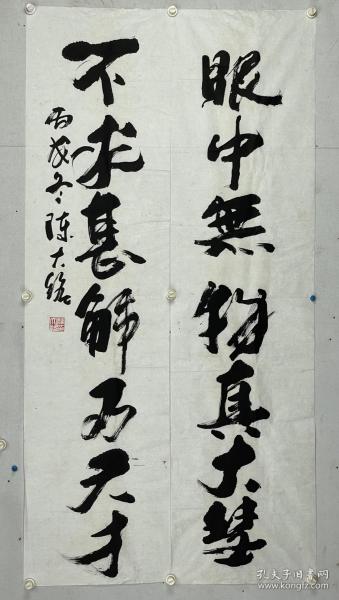 眼中無物真大慧
不求甚解乃天才
丙戌冬陈大铭
孔夫子旧书网
www.kongfz.com